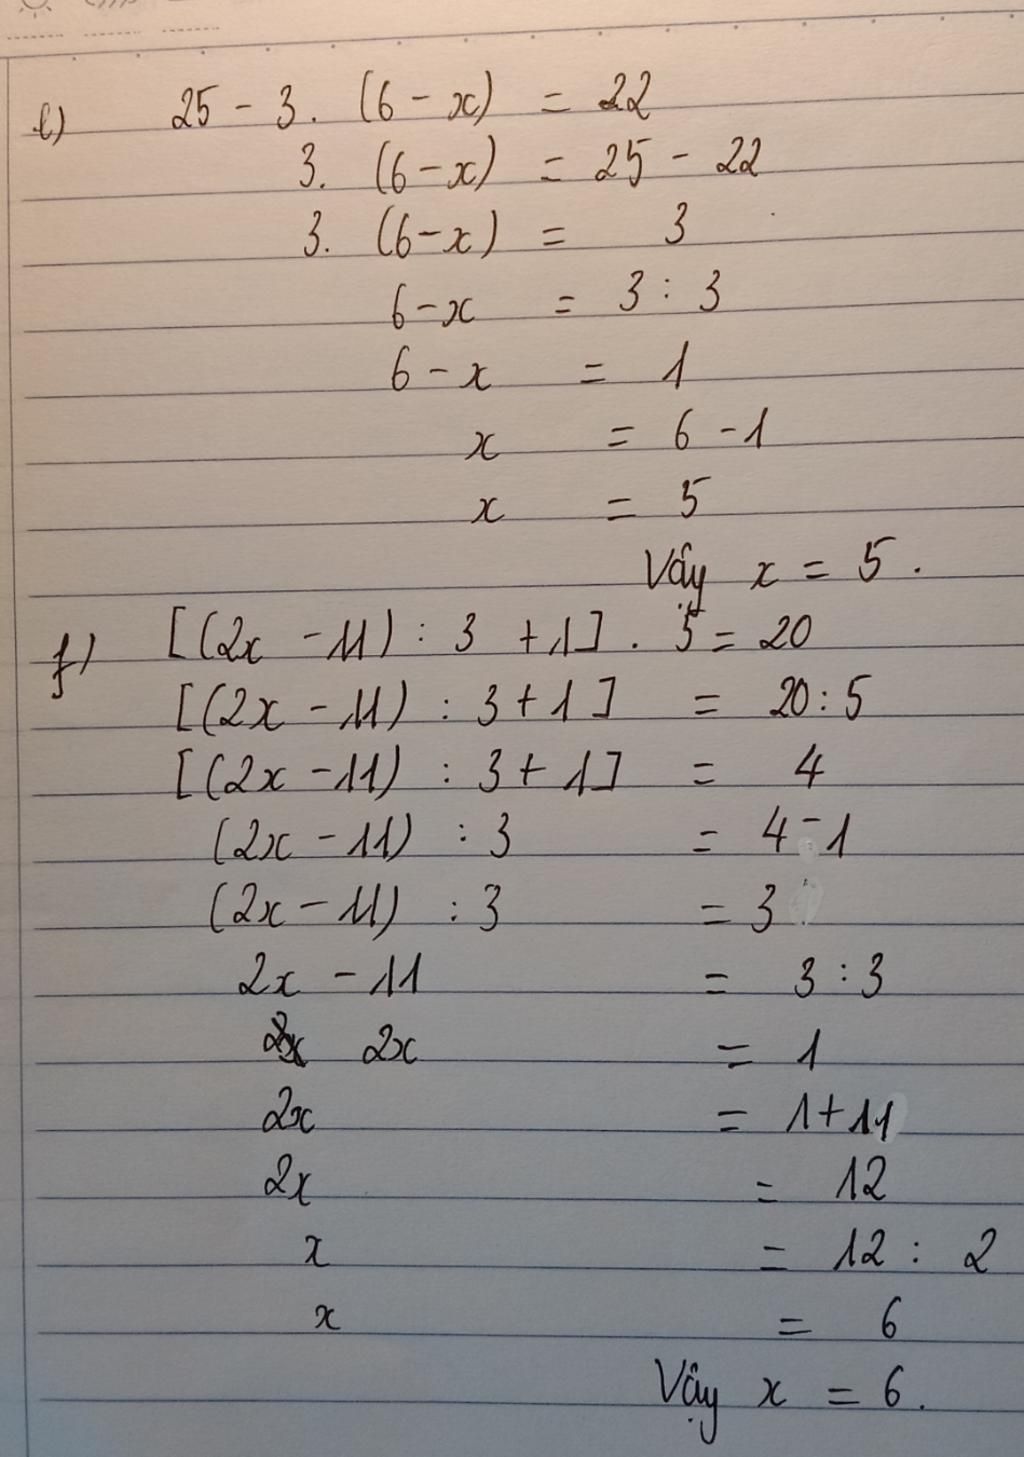 e) 25 - 3. (6 - x) = 22
3. (6 - x) = 25 - 22
3. (6 - x) = 3
6 - x = 3 : 3
6 - x = 1
x = 6 - 1
x = 5
Vậy x = 5.
f) [(2x - 11) : 3 + 1] . 5 = 20
[(2x - 11) : 3 + 1] = 20 : 5
[(2x - 11) : 3 + 1] = 4
(2x - 11) : 3 = 4 - 1
(2x - 11) : 3 = 3
2x - 11 = 3 : 3
2x = 1
2x = 1 + 11
2x = 12
x = 12 : 2
x = 6
Vậy x = 6.